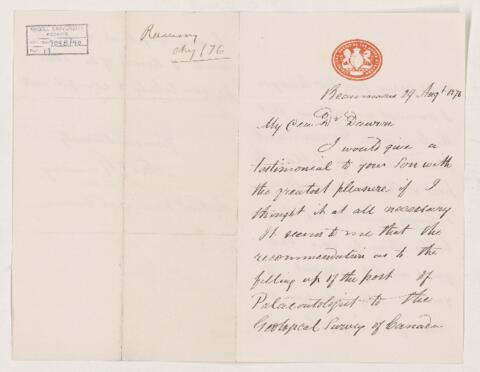 McGILL UNIVERSITY
ARCHIVES
ACC. NO. 2028/40
REF. 17
Ramsay
Aug /76
Beaumaris 29 Augt 1876
My Dear Dr Dawson
I would give a
testimonial to your Son with
the greatest pleasure if I
thought it at all necessary.
It seems to me that the
recommendation as to the
filling up of the post of
Palaeontologist to the
Geological Survey of Canada